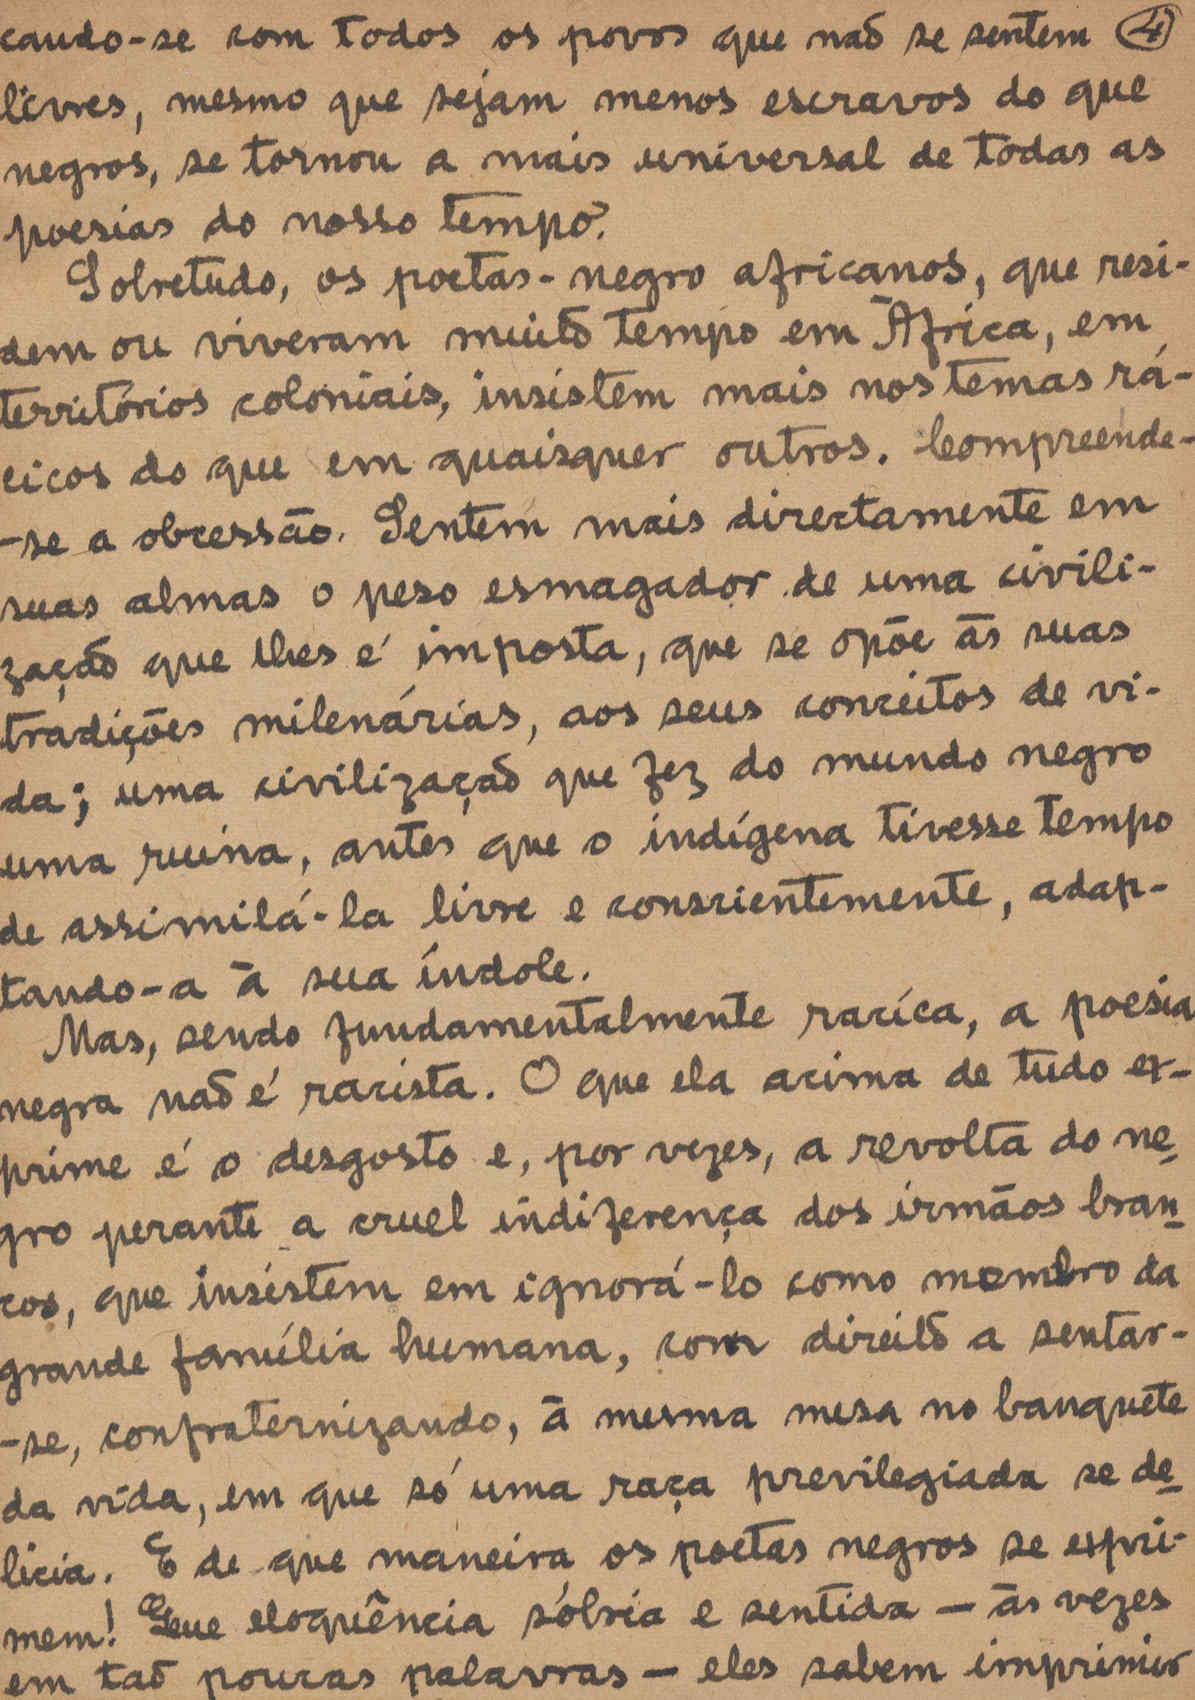 cando-se com todos os povos que não se sentem 4
livres, mesmo que sejam menos escravos do que
negros, se tornou a mais universal de todas as
poesias do nosso tempo?
Sobretudo, os poetas-negro africanos, que resi-
dem ou viveram muito tempo em África, em
territórios coloniais, insistem mais nos temas rá-
cicos do que em quaisquer outros. Compreende-
-se a obcessão. Sentem mais directamente em
suas almas o peso esmagador de uma civili-
zação que lhes é imposta, que se opõe às suas
tradições milenárias, aos seus conceitos de vi-
da; uma civilização que fez do mundo negro
uma ruina, antes que o indígena tivesse tempo
de assimilá-la livre e conscientemente, adap-
tando-a à sua índole.
Mas, sendo fundamentalmente racica, a poesia
negra não é racista. O que ela acima de tudo ex-
prime é o desgosto e, por vezes, a revolta do ne-
gro perante a cruel indiferença dos irmãos bran-
cos, que insistem em ignorá-lo como membro da
grande família humana, com direito a sentar-
-se, confraternizando, à mesma mesa no banquete
da vida, em que só uma raça previlegiada se de-
licia. E de que maneira os poetas negros se expri-
mem! Que eloquência sóbria e sentida — às vezes
em tão poucas palavras — eles sabem imprimir